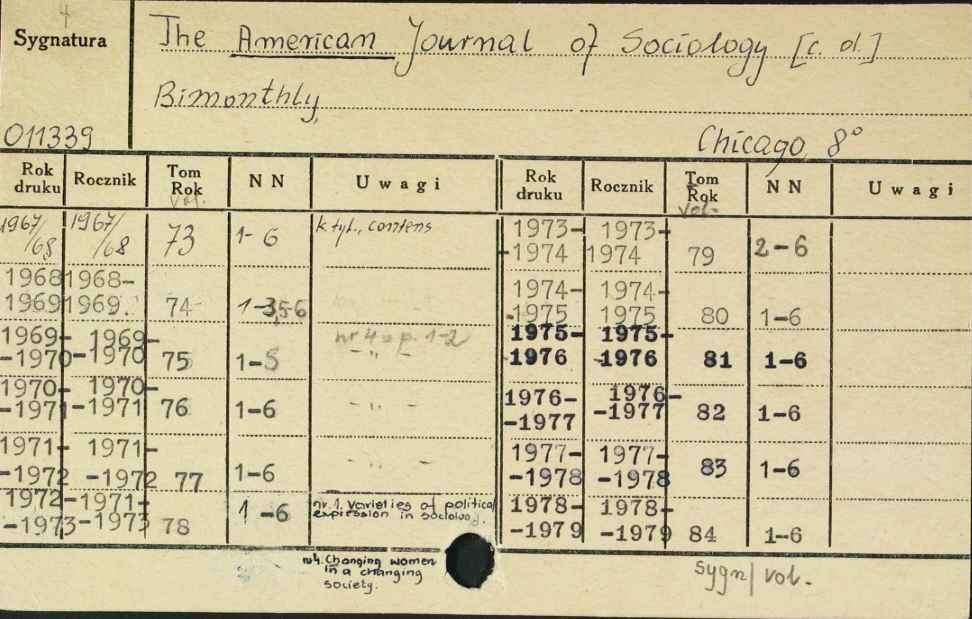 4
Sygnatura
The American Journal of Sociology [c. d.]
Bimonthly,
011339
Chicago, 8°
Rok druku Rocznik Tom Rok vol. NN Uwagi
1967/68 1967/68 73 1-6 k tyt., contens
1968 1968-
1969 1969. 74 1-3,5-6
1969- 1969- nr 4 = p. 1-2
-1970 -1970 75 1-5 - „ -
1970- 1970-
-1971 -1971 76 1-6 - „ -
1971- 1971-
-1972 -1972 77 1-6 - „ -
1972 -1971- nr. 1. Varieties of political
-1973 -1973 78 1-6 expression in sociology.
nr4. Changing women
in a changing
society.
Rok druku Rocznik Tom Rok vol. NN Uwagi
1973- 1973-
-1974 1974 79 2-6
1974- 1974-
-1975 1975 80 1-6
1975- 1975-
-1976 -1976 81 1-6
1976- 1976-
-1977 -1977 82 1-6
1977- 1977-
-1978 -1978 83 1-6
1978- 1978-
-1979 -1979 84 1-6
sygn/vol.